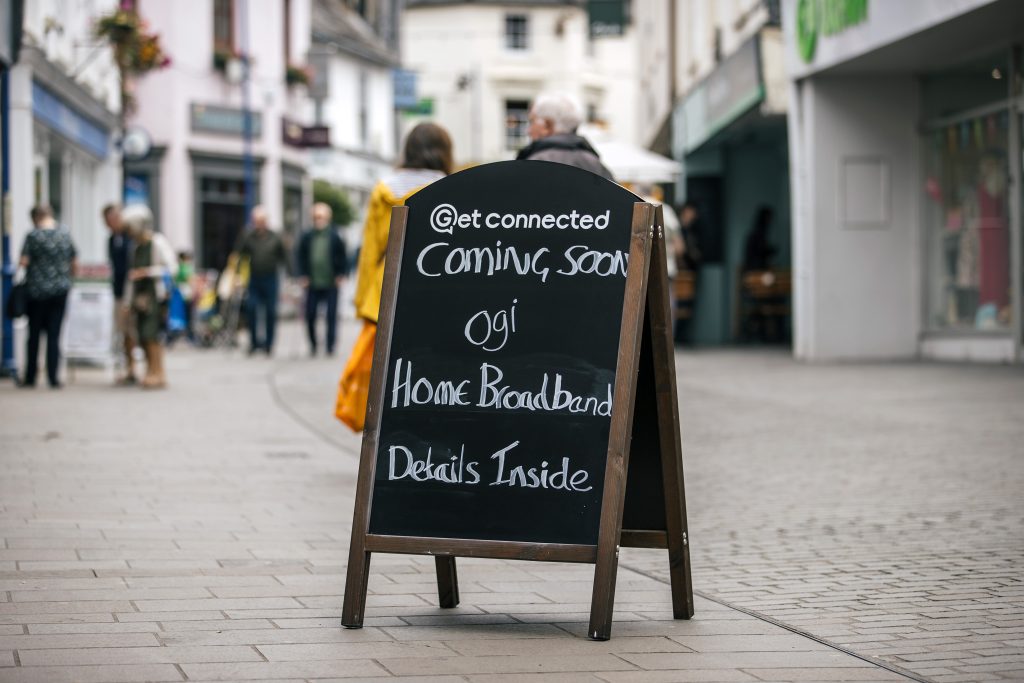 Get connected
Coming soon
ogi
Home Broadband
Details Inside